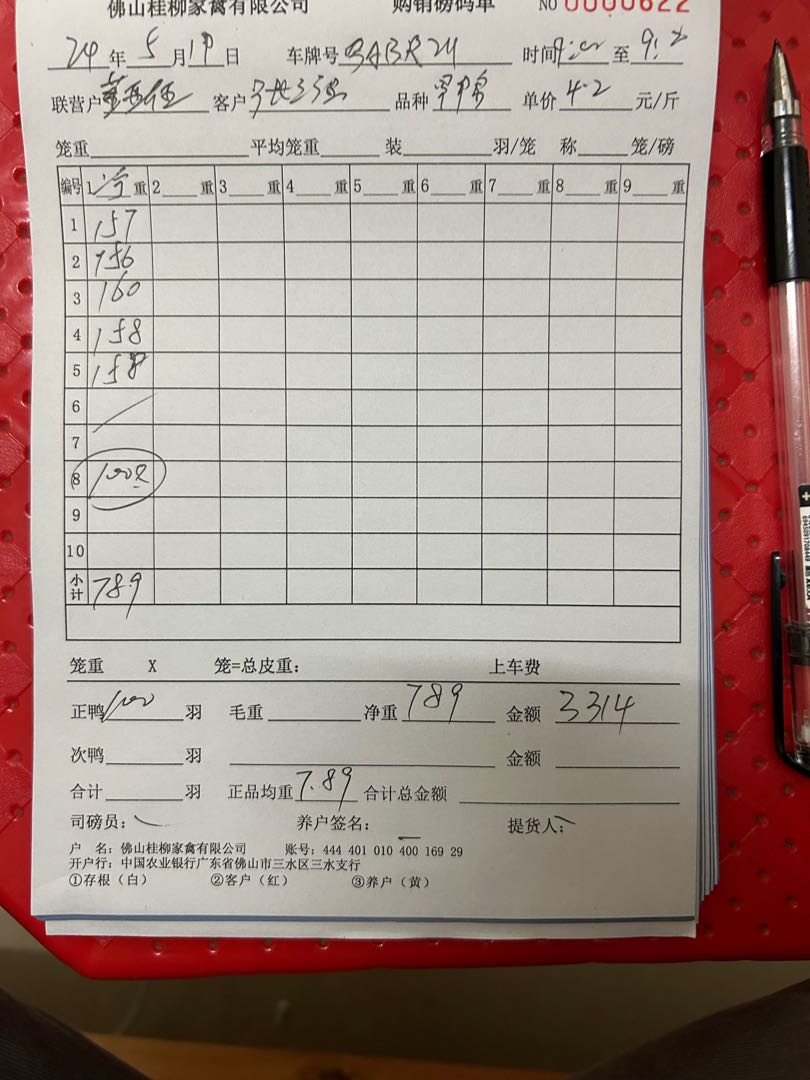 佛山桂柳家禽有限公司 购销磅码单 NO 0000622
24年5月19日 车牌号 时间 至
联营户 客户 品种 单价4.2元/斤
笼重 平均笼重 装 羽/笼 称 笼/磅
编号 1 净 重 2 重 3 重 4 重 5 重 6 重 7 重 8 重 9 重
1 157
2 156
3 160
4 158
5 158
6
7
8
9
10
小计 789
笼重 X 笼=总皮重: 上车费
正鸭100羽 毛重 净重789 金额3314
次鸭 羽 金额
合计 羽 正品均重7.89 合计总金额
司磅员: 养户签名: 提货人:
户 名: 佛山桂柳家禽有限公司 账号: 444 401 010 400 169 29
开户行: 中国农业银行广东省佛山市三水区三水支行
①存根(白) ②客户(红) ③养户(黄)